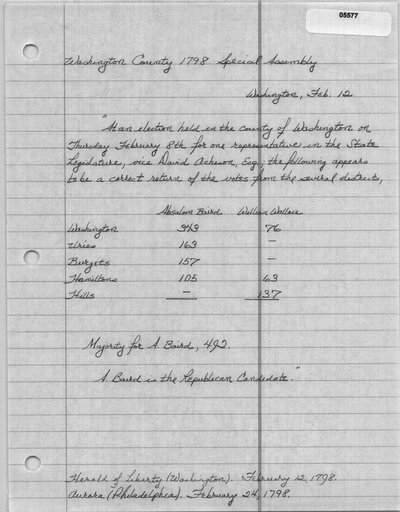 05577
Washington County 1798 Special Assembly
Washington, Feb. 12
"At an election held in the county of Washington on
Thursday February 8th for one representative in the State
Legislature, vice David Acheson, Esq.; the following appears
to be a correct return of the votes from the several districts,
Absalom Baird William Wallace
Washington 343 76
Uries 163 —
Burgets 157 —
Hamiltons 105 63
Hills — 137
Majority for A. Baird, 492.
A Baird is the Republican Candidate."
Herald of Liberty (Washington). February 12, 1798.
Aurora (Philadelphia). February 24, 1798.